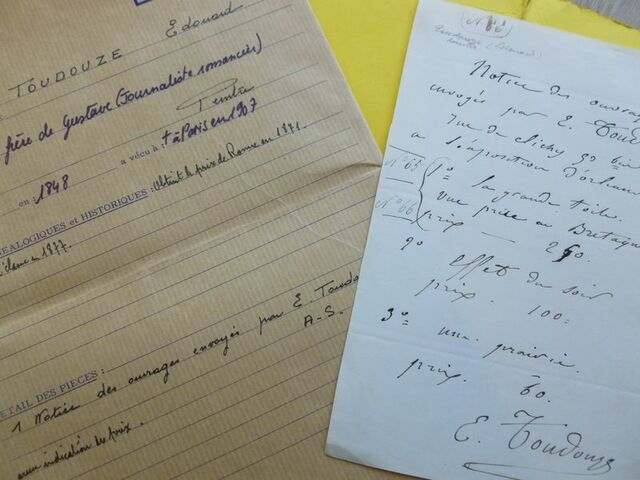 TOUDOUZE Edouard
frère de Gustave (Journaliste romancier)
Peintre
en : 1848 a vécu à : † à Paris en 1907
NEALOGIQUES et HISTORIQUES : Obtint le prix de Rome en 1871.
en 1877.
DETAIL DES PIECES :
1 Notice des ouvrages envoyés par E. Toudou
A-S.
avec indication des prix.
Toudouze (Edouard)
Notice des ouvrag
envoyés par E. Toud
rue de clichy 59 bis
a l'exposition d'orléan
N° 65 1° la grande toile.
N° 66 vue prise en Bretagne
prix — 250.
2° effet du soir
prix. 100.
3° une prairie.
prix. 60.
E. Toudouze